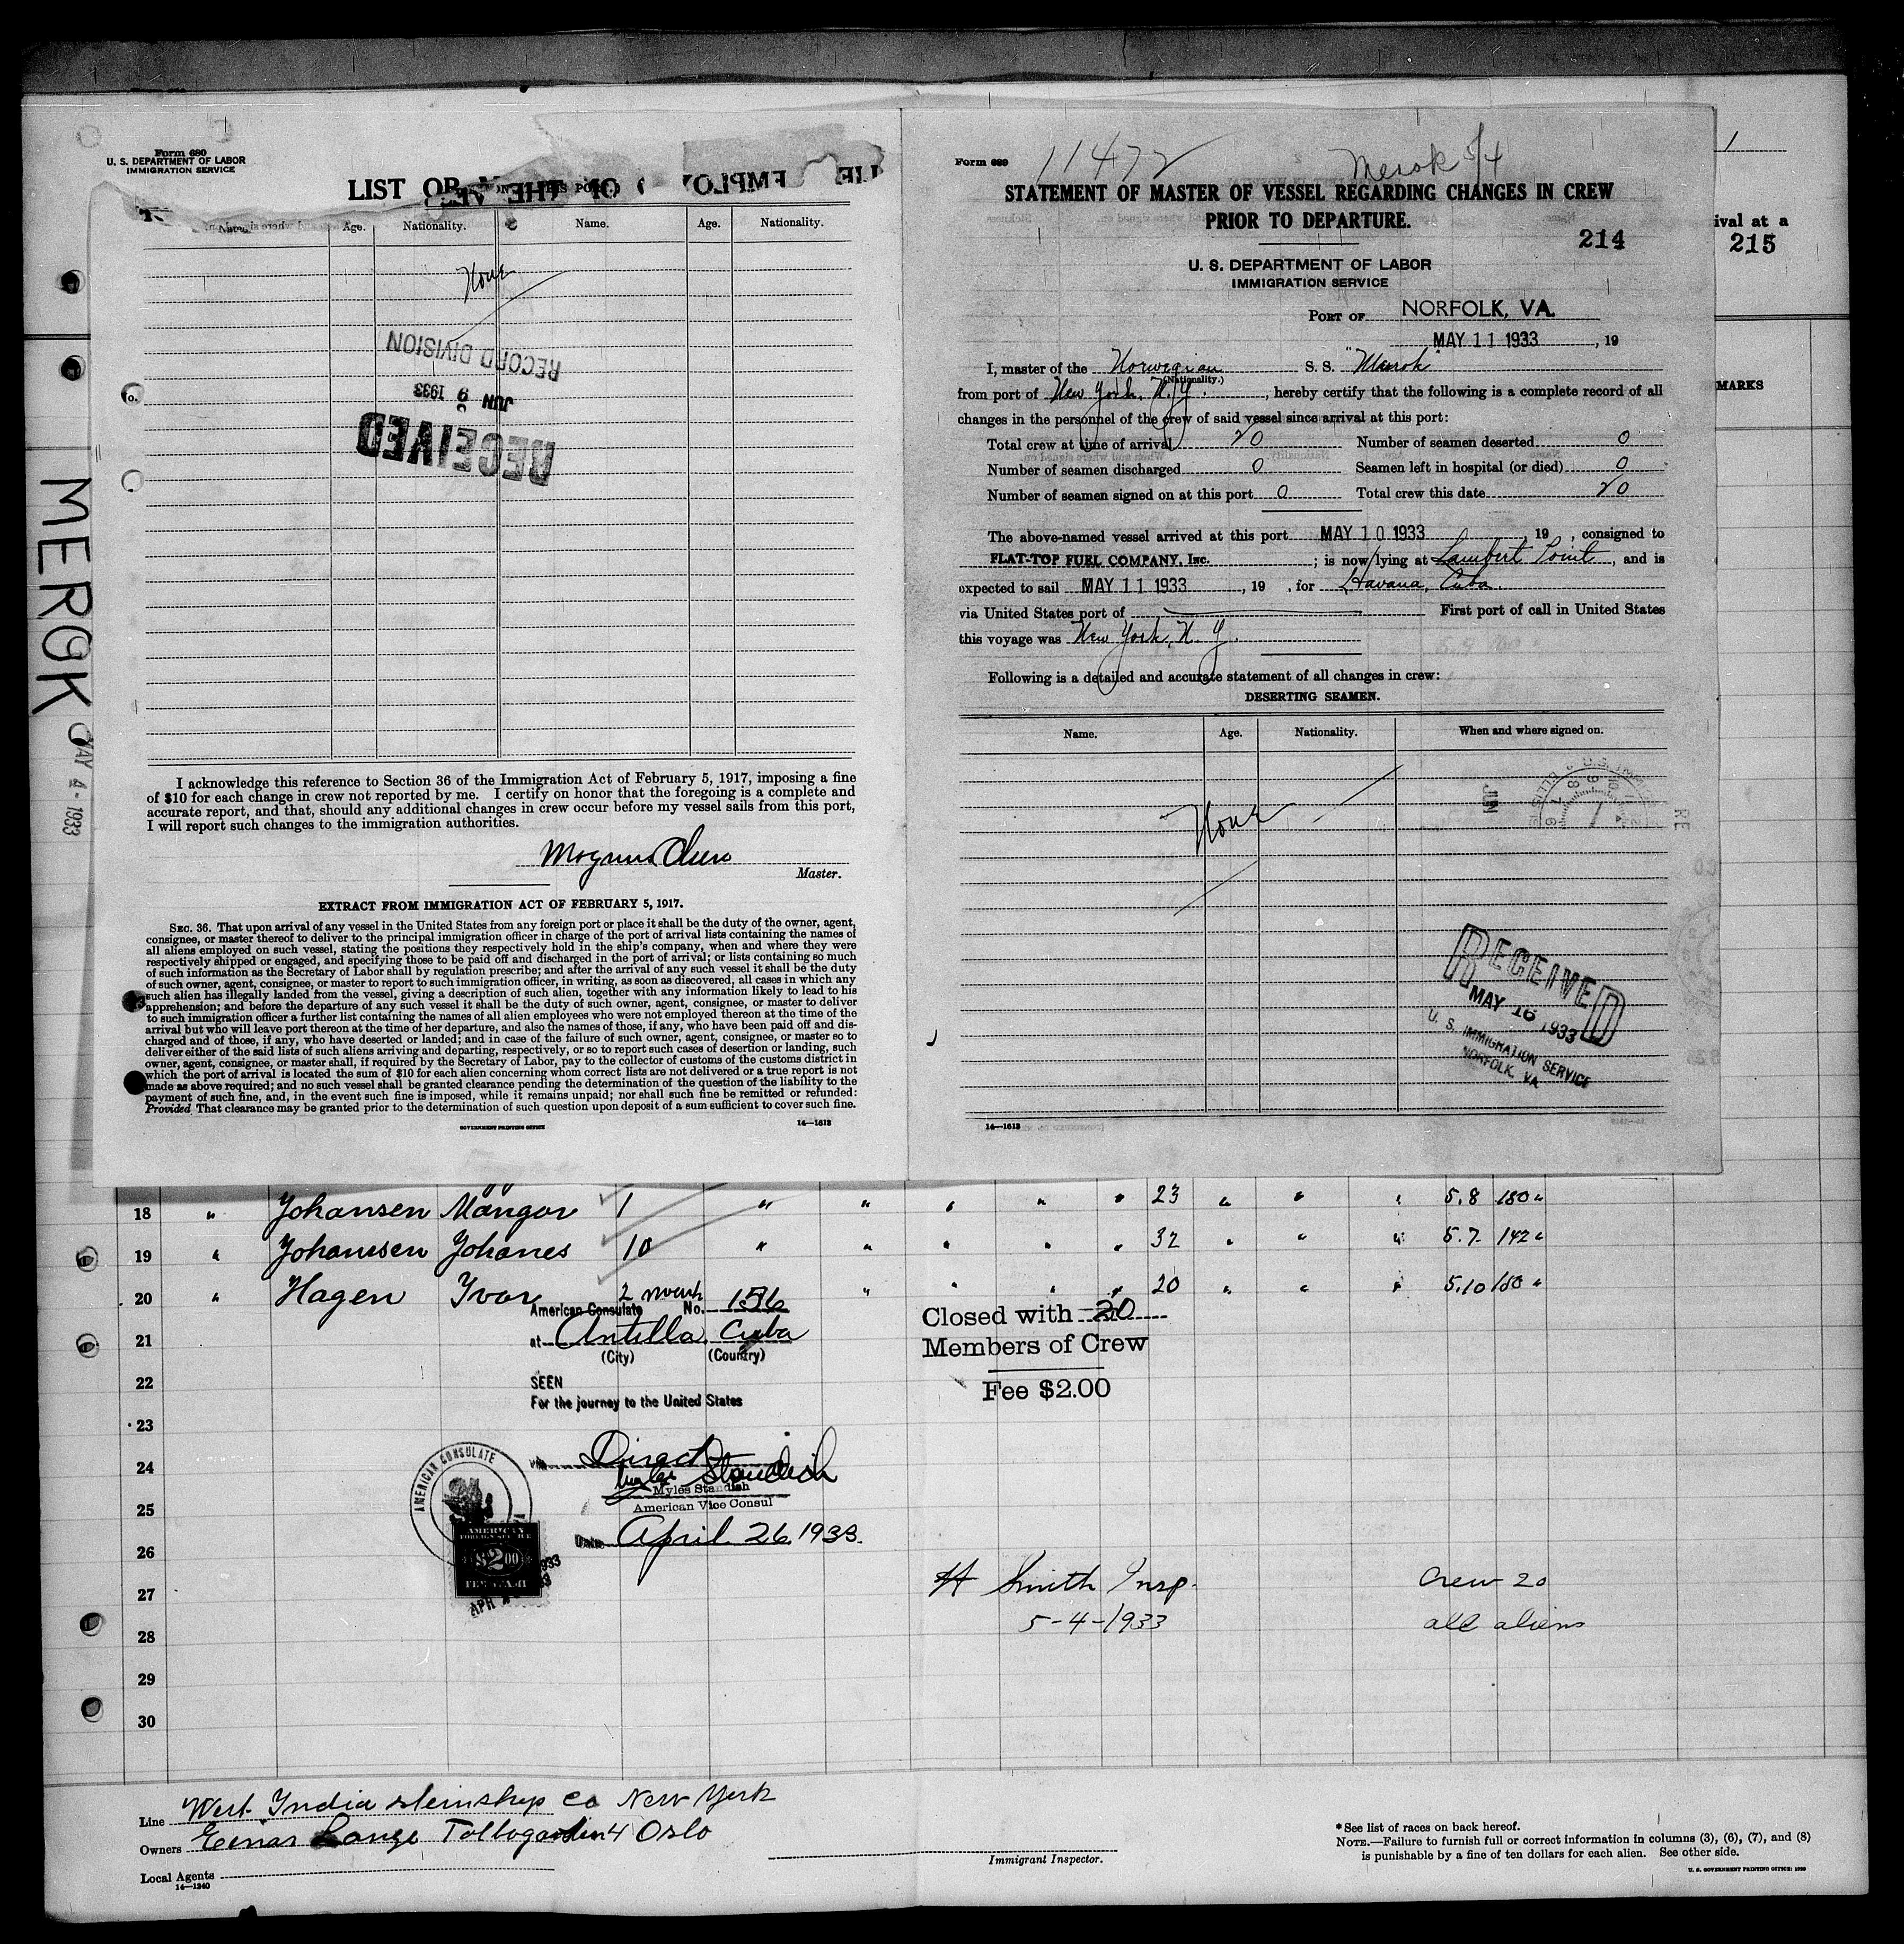 Form 680
U. S. DEPARTMENT OF LABOR
IMMIGRATION SERVICE
LIST OF
Name. Age. Nationality. Name. Age. Nationality.
None
RECORD DIVISION
JUN 9 1933
RECEIVED
I acknowledge this reference to Section 36 of the Immigration Act of February 5, 1917, imposing a fine
of $10 for each change in crew not reported by me. I certify on honor that the foregoing is a complete and
accurate report, and that, should any additional changes in crew occur before my vessel sails from this port,
I will report such changes to the immigration authorities.
Magnus Olsen
Master.
EXTRACT FROM IMMIGRATION ACT OF FEBRUARY 5, 1917.
SEC. 36. That upon arrival of any vessel in the United States from any foreign port or place it shall be the duty of the owner, agent,
consignee, or master thereof to deliver to the principal immigration officer in charge of the port of arrival lists containing the names of
all aliens employed on such vessel, stating the positions they respectively hold in the ship's company, when and where they were
respectively shipped or engaged, and specifying those to be paid off and discharged in the port of arrival; or lists containing so much
of such information as the Secretary of Labor shall by regulation prescribe; and after the arrival of any such vessel it shall be the duty
of such owner, agent, consignee, or master to report to such immigration officer, in writing, as soon as discovered, all cases in which any
such alien has illegally landed from the vessel, giving a description of such alien, together with any information likely to lead to his
apprehension; and before the departure of any such vessel it shall be the duty of such owner, agent, consignee, or master to deliver
to such immigration officer a further list containing the names of all alien employees who were not employed thereon at the time of the
arrival but who will leave port thereon at the time of her departure, and also the names of those, if any, who have been paid off and dis-
charged and of those, if any, who have deserted or landed; and in case of the failure of such owner, agent, consignee, or master so to
deliver either of the said lists of such aliens arriving and departing, respectively, or so to report such cases of desertion or landing, such
owner, agent, consignee, or master shall, if required by the Secretary of Labor, pay to the collector of customs of the customs district in
which the port of arrival is located the sum of $10 for each alien concerning whom correct lists are not delivered or a true report is not
made as above required; and no such vessel shall be granted clearance pending the determination of the question of the liability to the
payment of such fine, and, in the event such fine is imposed, while it remains unpaid; nor shall such fine be remitted or refunded:
Provided That clearance may be granted prior to the determination of such question upon deposit of a sum sufficient to cover such fine.
GOVERNMENT PRINTING OFFICE 14—1613
MEROK
MAY 4-1933
Form 689 11472 Merok 5/4
STATEMENT OF MASTER OF VESSEL REGARDING CHANGES IN CREW
PRIOR TO DEPARTURE.
214
U. S. DEPARTMENT OF LABOR
IMMIGRATION SERVICE
PORT OF NORFOLK, VA.
MAY 11 1933, 19
I, master of the Norwegian S. S. "Merok"
(Nationality.)
from port of New York, N.Y., hereby certify that the following is a complete record of all
changes in the personnel of the crew of said vessel since arrival at this port:
Total crew at time of arrival 20 Number of seamen deserted 0
Number of seamen discharged 0 Seamen left in hospital (or died) 0
Number of seamen signed on at this port 0 Total crew this date 20
The above-named vessel arrived at this port MAY 10 1933, 19 , consigned to
FLAT-TOP FUEL COMPANY, Inc. ; is now lying at Lambert Point, and is
expected to sail MAY 11 1933, 19 , for Havana, Cuba.
via United States port of First port of call in United States
this voyage was New York, N. Y.
Following is a detailed and accurate statement of all changes in crew:
DESERTING SEAMEN.
Name. Age. Nationality. When and where signed on.
None
JUN
RECEIVED
MAY 16 1933
U. S. IMMIGRATION SERVICE
NORFOLK, VA
14—1613
ival at a
215
MARKS
18 " Johansen Mangor 1 " " " " " 23 " " " 5.8 180 "
19 " Johannsen Johanes 10 " " " " " 32 " " " 5.7 142 "
20 " Hagen Ivar 2 month " " " " 20 " " " 5.10 160 "
21
22
23
24
25
26
27
28
29
30
American Consulate No. 156
at Antilla Cuba
(City) (Country)
SEEN
For the journey to the United States
Direct
Myles Standish
Myles Standish
American Vice Consul
Date April 26, 1933.
AMERICAN CONSULATE
AMERICAN
FOREIGN SERVICE
$2.00
FEE STAMP
APR
Closed with 20
Members of Crew
Fee $2.00
H Smith Insp.
5-4-1933
Crew 20
all aliens
Line West India steinship co New York
Owners Einar Lange Tolbogaden 4 Oslo
Local Agents
14—1240
Immigrant Inspector.
*See list of races on back hereof.
NOTE.—Failure to furnish full or correct information in columns (3), (6), (7), and (8)
is punishable by a fine of ten dollars for each alien. See other side.
U. S. GOVERNMENT PRINTING OFFICE: 1930